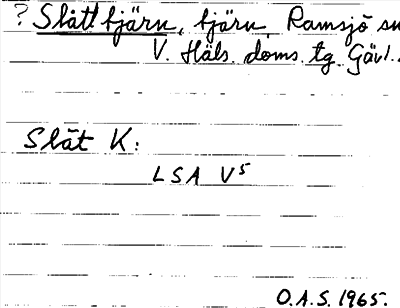 ? Slåttjärn, tjärn, Ramsjö sn
V. Häls. doms. tg. Gävl..
Slåt K:
LSA V5
O.A.S. 1965.